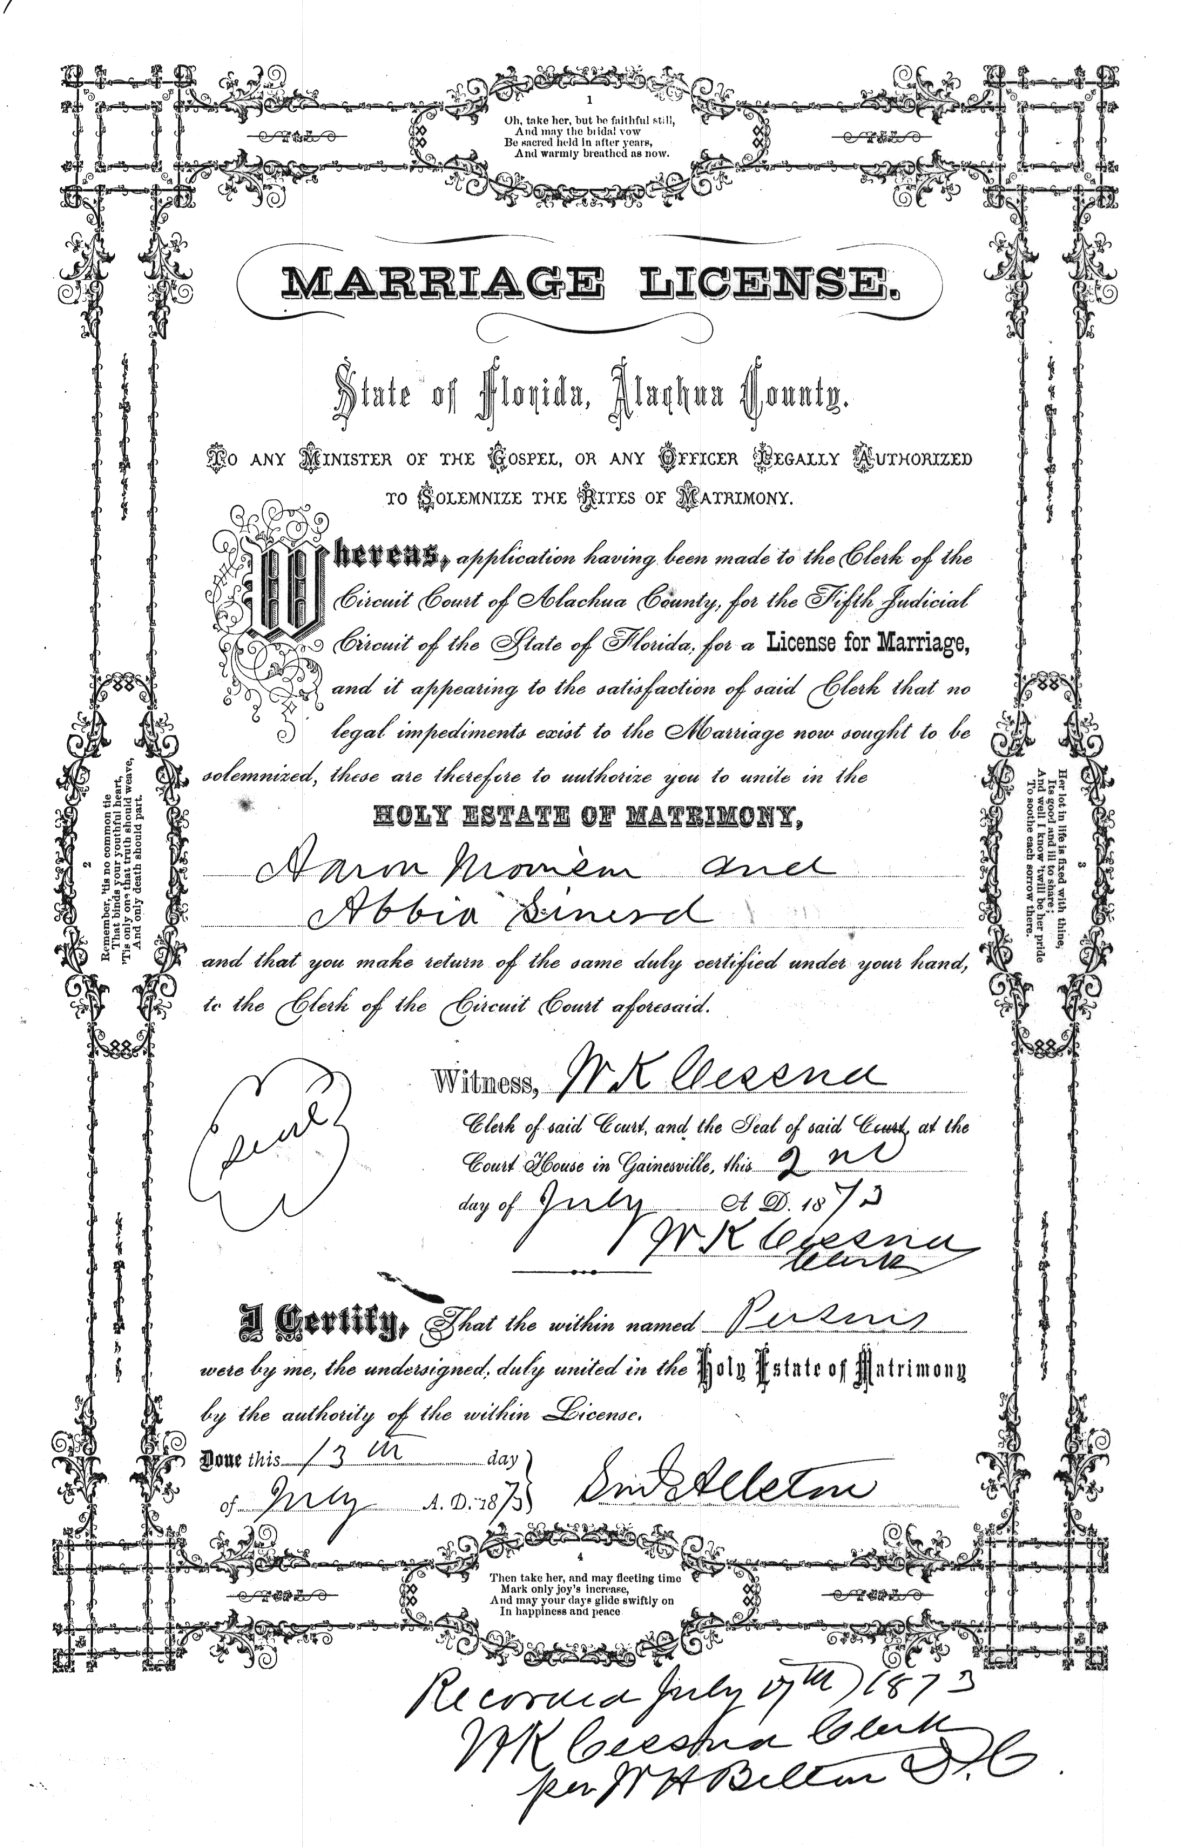 1
Oh, take her, but be faithful still,
And may the bridal vow
Be sacred held in after years,
And warmly breathed as now.
MARRIAGE LICENSE.
State of Florida, Alachua County.
To any Minister of the Gospel, or any Officer Legally Authorized
to Solemnize the Rites of Matrimony.
Whereas, application having been made to the Clerk of the
Circuit Court of Alachua County, for the Fifth Judicial
Circuit of the State of Florida, for a License for Marriage,
and it appearing to the satisfaction of said Clerk that no
legal impediments exist to the Marriage now sought to be
solemnized, these are therefore to authorize you to unite in the
HOLY ESTATE OF MATRIMONY,
Aaron and
Abbia
and that you make return of the same duly certified under your hand,
to the Clerk of the Circuit Court aforesaid.
2
Remember, 'tis no common tie
That binds your youthful heart,
'Tis one only that truth should weave,
And only death should part.
3
Her lot in life is fixed with thine,
Its good and ill to share;
And well I know 'twill be her pride
To soothe each sorrow there.
Seal
Witness, W K Cessna
Clerk of said Court, and the Seal of said Court, at the
Court House in Gainesville, this 2nd
day of July A D. 1873
W K Cessna
Clerk
I Certify, That the within named Persons
were by me, the undersigned, duly united in the Holy Estate of Matrimony
by the authority of the within License.
Done this 13th day
of July A. D. 1873
4
Then take her, and may fleeting time
Mark only joy's increase,
And may your days glide swiftly on
In happiness and peace
Recorded July 17th 1873
W K Cessna Clerk
per W H Belton D.C.